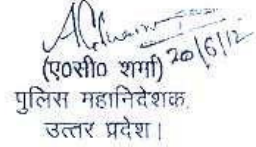 20/6/12
(ए०सी० शर्मा)
पुलिस महानिदेशक,
उत्तर प्रदेश।